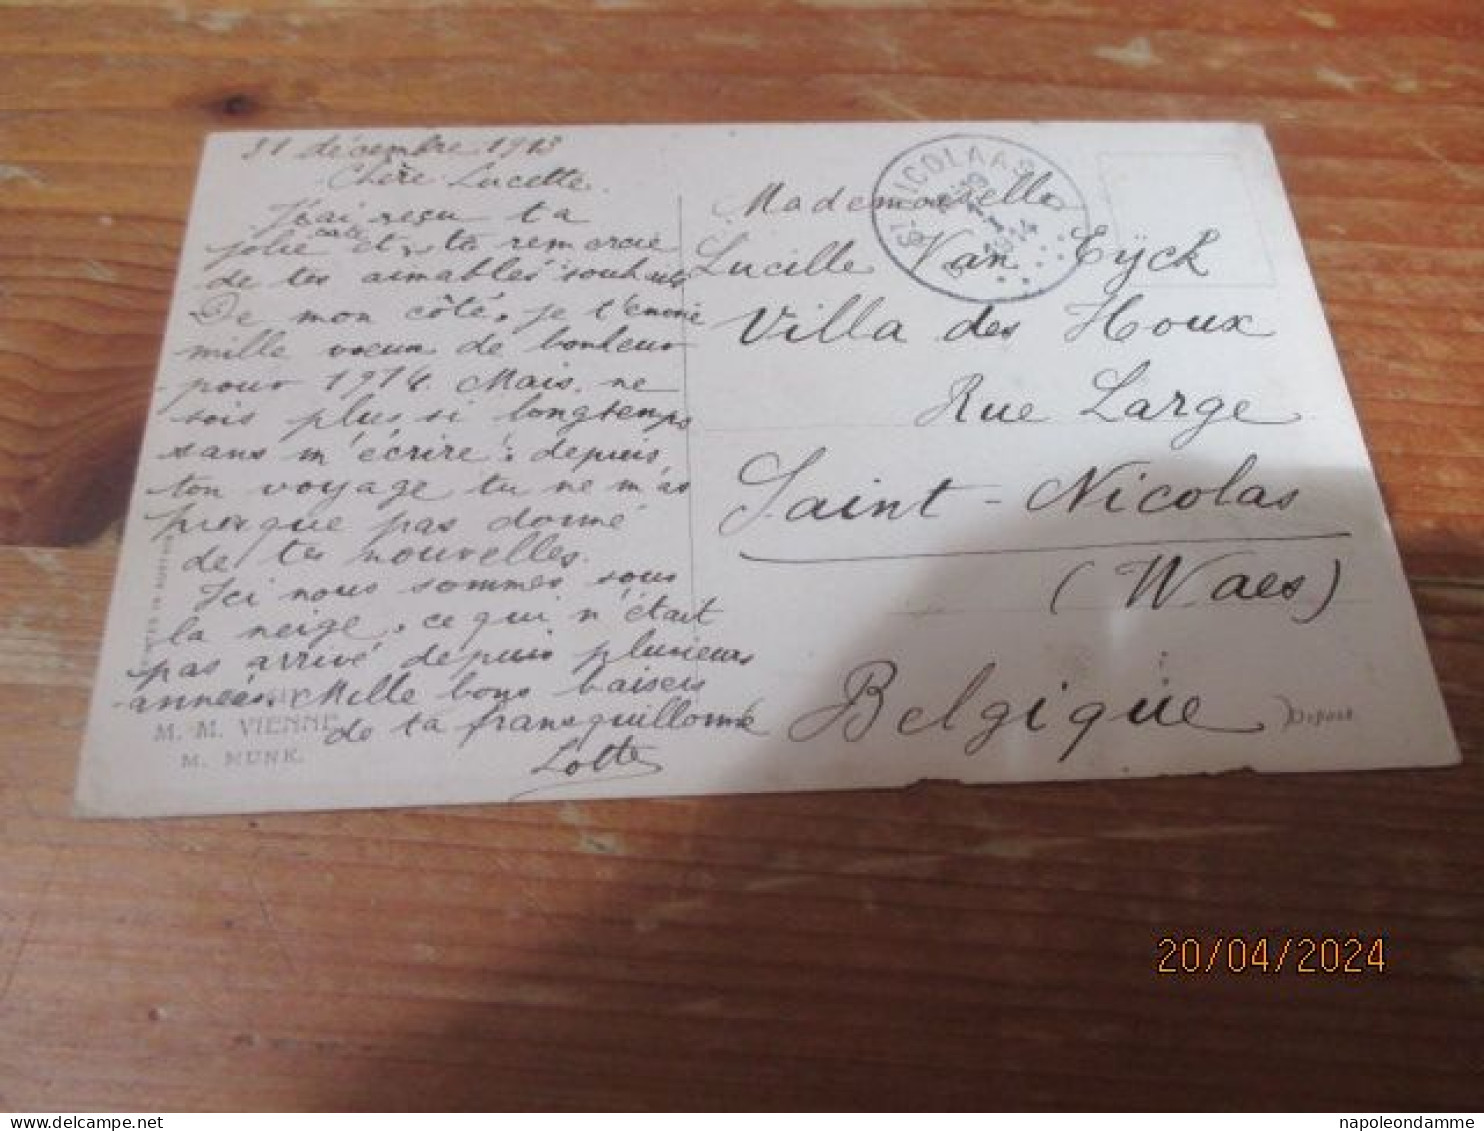 31 décembre 1913
Chère Lucette.
J'ai reçu ta
jolie carte et te remercie
de tes aimables souhaits
De mon côté, je t'envoie
mille voeux de bonheur
pour 1914. Mais, ne
sois plus si longtemps
sans m'écrire: depuis
ton voyage tu ne m'as
presque pas donné
de tes nouvelles.
Ici nous sommes sous
la neige, ce qui n'était
pas arrivé depuis plusieurs
années. Mille bons baisers
de ta
Lotte
M. M. VIENNE
M. MUNK.
ST NICOLAAS
1914
Mademoiselle
Lucille Van Eÿck
Villa des Houx
Rue Large
Saint-Nicolas
(Waes)
Belgique
Déposé
20/04/2024
napoleondamme
delcampe.net